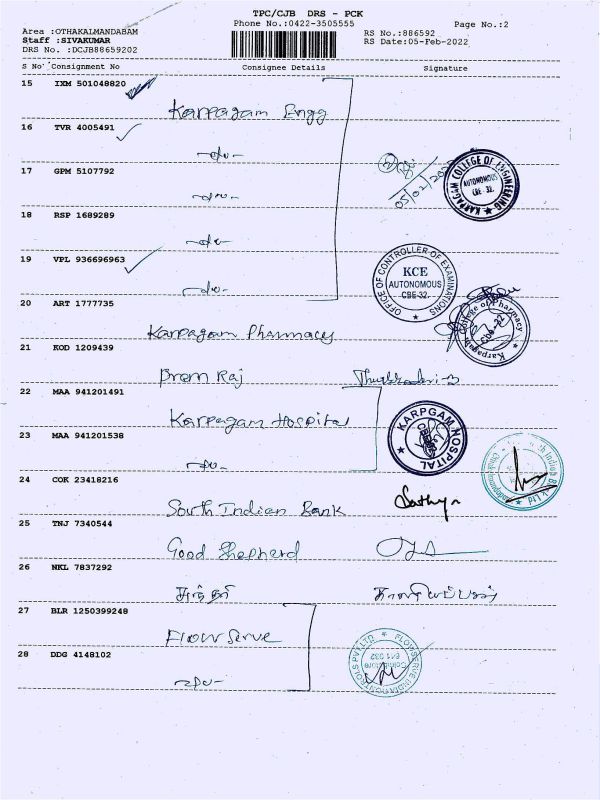 TPC/CJB DRS - PCK
Phone No.:0422-3505555
Page No.:2
Area :OTHAKALMANDABAM
Staff :SIVAKUMAR
DRS No. :DCJB88659202
RS No.:886592
RS Date:05-Feb-2022
S No Consignment No Consignee Details Signature
15 IXM 501048820
Karpagam Engg
16 TVR 4005491
-do-
17 GPM 5107792
-do-
05/02/202
KARPAGAM COLLEGE OF ENGINEERING
AUTONOMOUS
CBE-32.
18 RSP 1689289
-do-
19 VPL 936696963
-do-
OFFICE OF CONTROLLER OF EXAMINATIONS
KCE
AUTONOMOUS
CBE-32.
20 ART 1777735
Karpagam Pharmacy
Karpagam College of Pharmacy
CBE-32
21 KOD 1209439
Prem Raj
22 MAA 941201491
Karpagam Hospital
KARPGAM HOSPITAL
23 MAA 941201538
-do-
24 COK 23418216
South Indian Bank
Sathya
South Indian Bank Ltd
25 TNJ 7340544
Good Shepherd
26 NKL 7837292
27 BLR 1250399248
Flow Serve
FLOWSERVE INDIA CONTROLS PVT LTD
Coimbatore
641 032
28 DDG 4148102
-do-